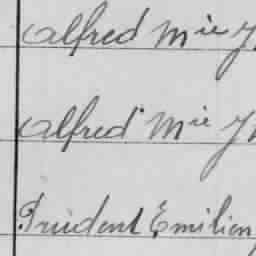 Alfred Mie
Alfred Mie
Prudent Emilien